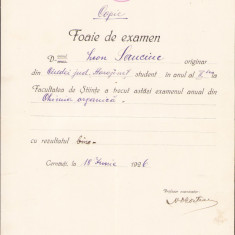 Copie
Foaie de examen
D. nul Leon Sauciuc originar
din jud. Storojineț student în anul al II-lea
Facultatea de Științe a trecut astăzi examenul anual din
Chimia organică
cu rezultatul bine
Cernăuți, în 18 Iunie 1926
Profesor examinator: